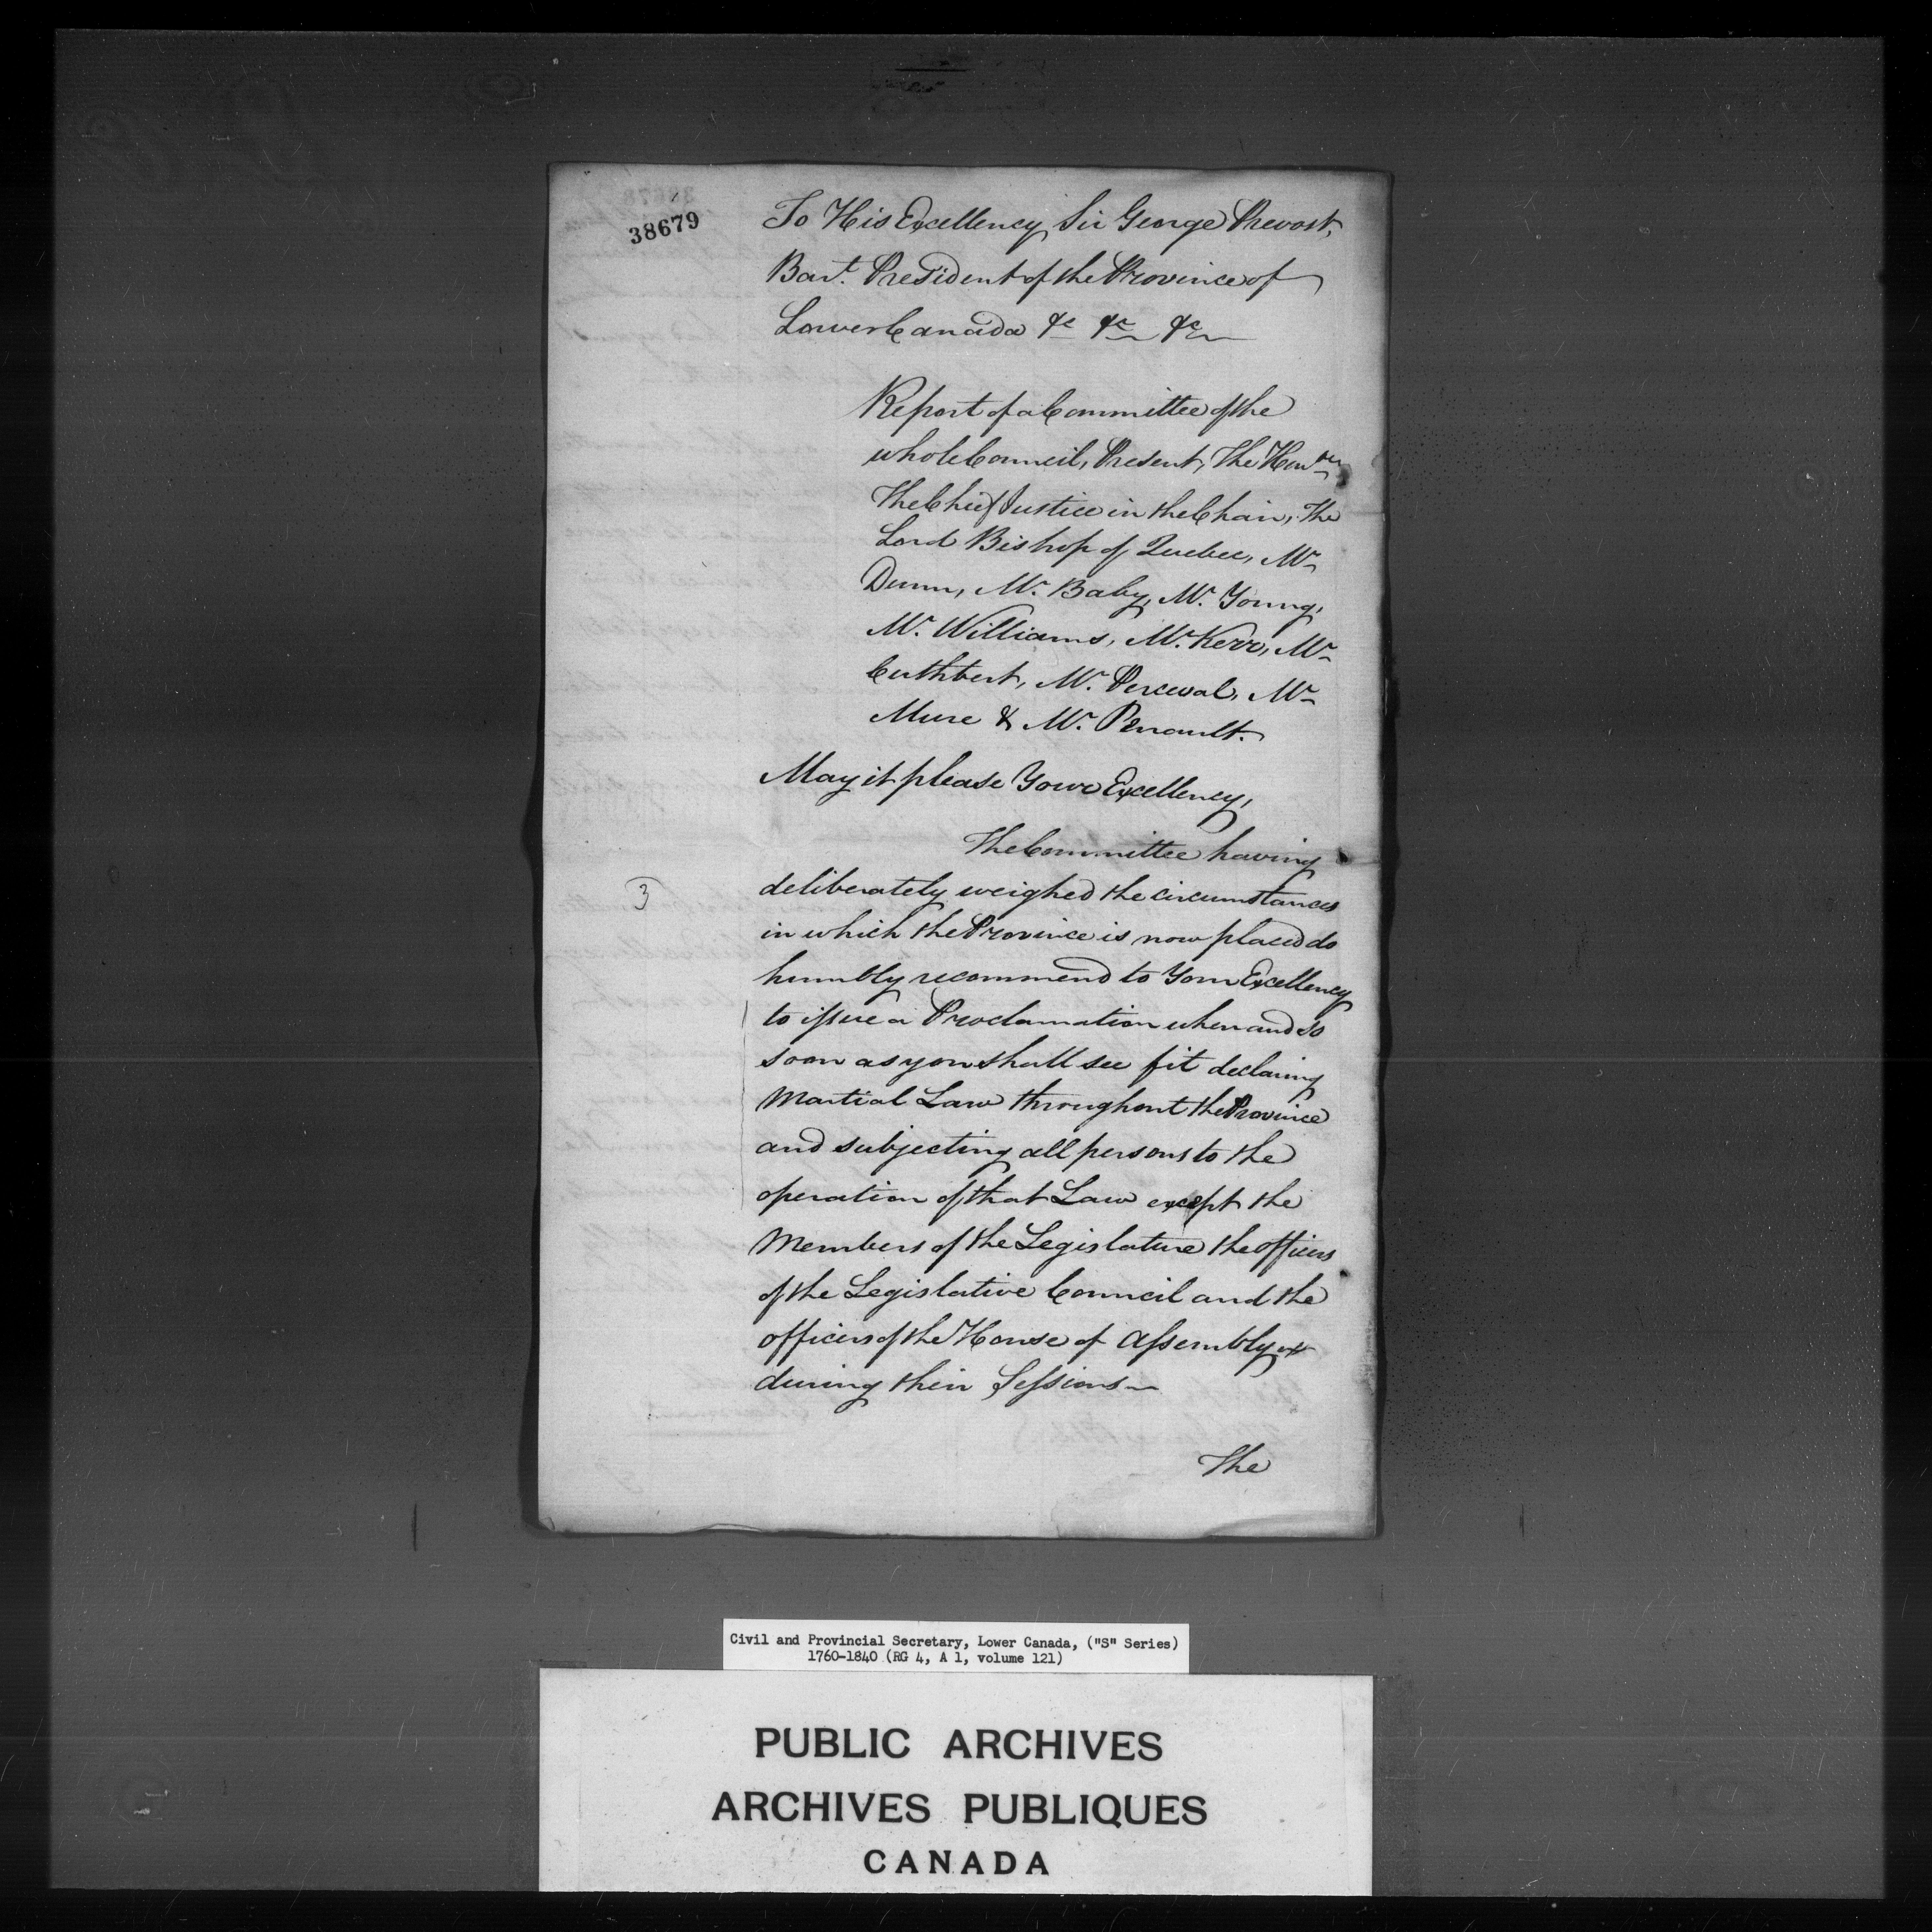 38679
To His Excellency Sir George Prevost,
Bart. President of the Province of
Lower Canada &c &c &c
Report of a Committee of the
whole Council, Present, The Honble
The Chief Justice in the Chair, The
Lord Bishop of Quebec, Mr.
Dunn, Mr. Baby, Mr. Young,
Mr. Williams, Mr. Kerr, Mr.
Cuthbert, Mr. Perceval, Mr.
Mure & Mr. Renault.
May it please Your Excellency,
The Committee having
3
deliberately weighed the circumstances
in which the Province is now placed do
humbly recommend to Your Excellency
to issue a Proclamation when and so
soon as you shall see fit declaring
Martial Law throughout the Province
and subjecting all persons to the
operation of that Law except the
Members of the Legislature the officers
of the Legislative Council and the
officers of the House of Assembly
during their Sessions
The
Civil and Provincial Secretary, Lower Canada, ("S" Series)
1760-1840 (RG 4, A 1, volume 121)
PUBLIC ARCHIVES
ARCHIVES PUBLIQUES
CANADA